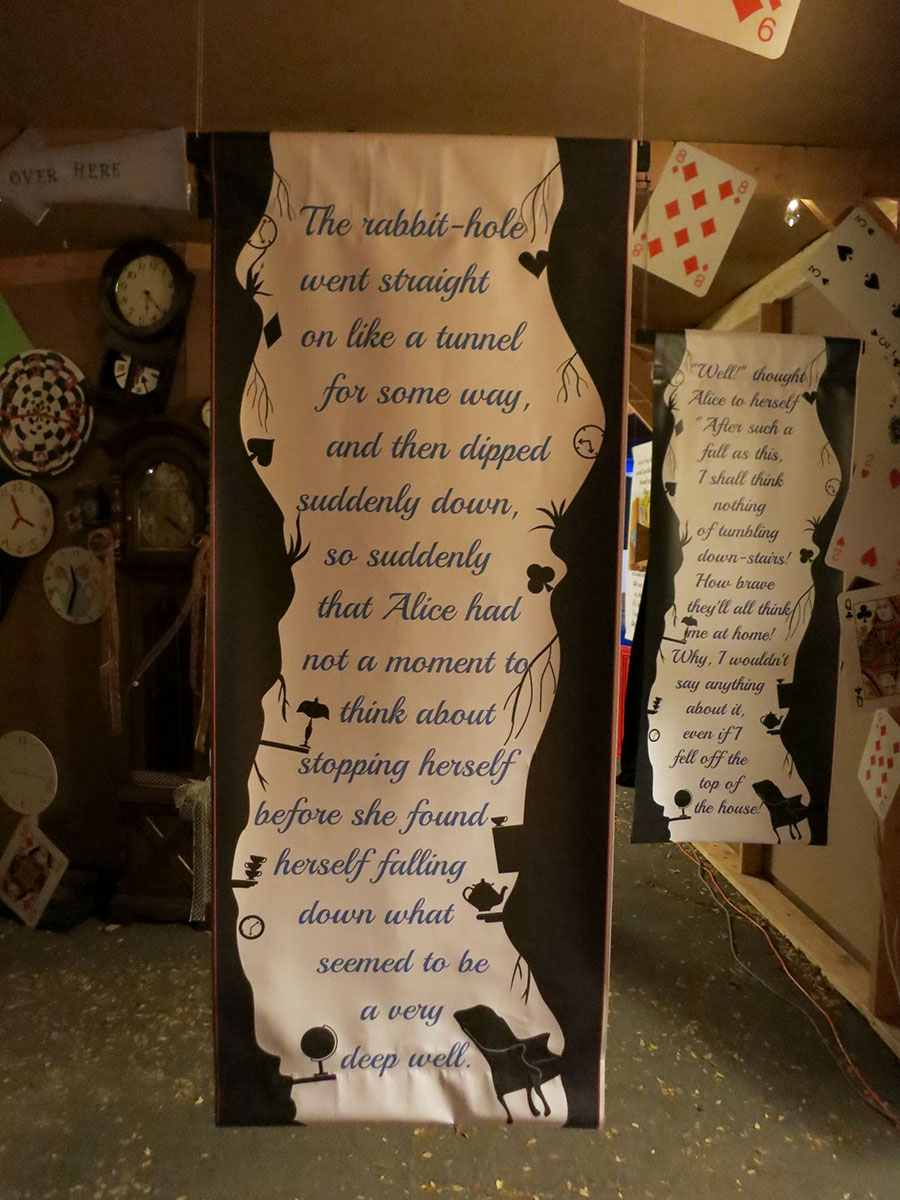 OVER HERE
The rabbit-hole
went straight
on like a tunnel
for some way,
and then dipped
suddenly down,
so suddenly
that Alice had
not a moment to
think about
stopping herself
before she found
herself falling
down what
seemed to be
a very
deep well.
"Well!" thought
Alice to herself
"After such a
fall as this,
I shall think
nothing
of tumbling
down-stairs!
How brave
they'll all think
me at home!
Why, I wouldn't
say anything
about it,
even if I
fell off the
top of
the house!
6
8
8
8
8
3
3
2
2
Q